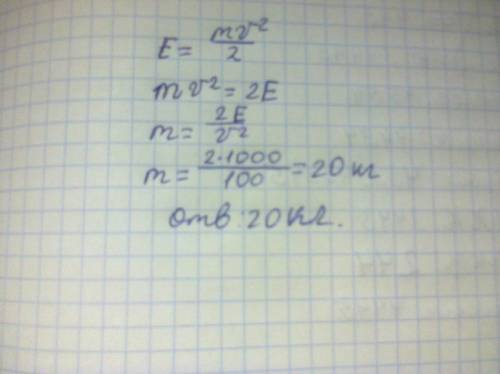 E = mv²/2
mv² = 2E
m = 2E/v²
m = 2·1000/100 = 20 кг
Отв: 20 кг.